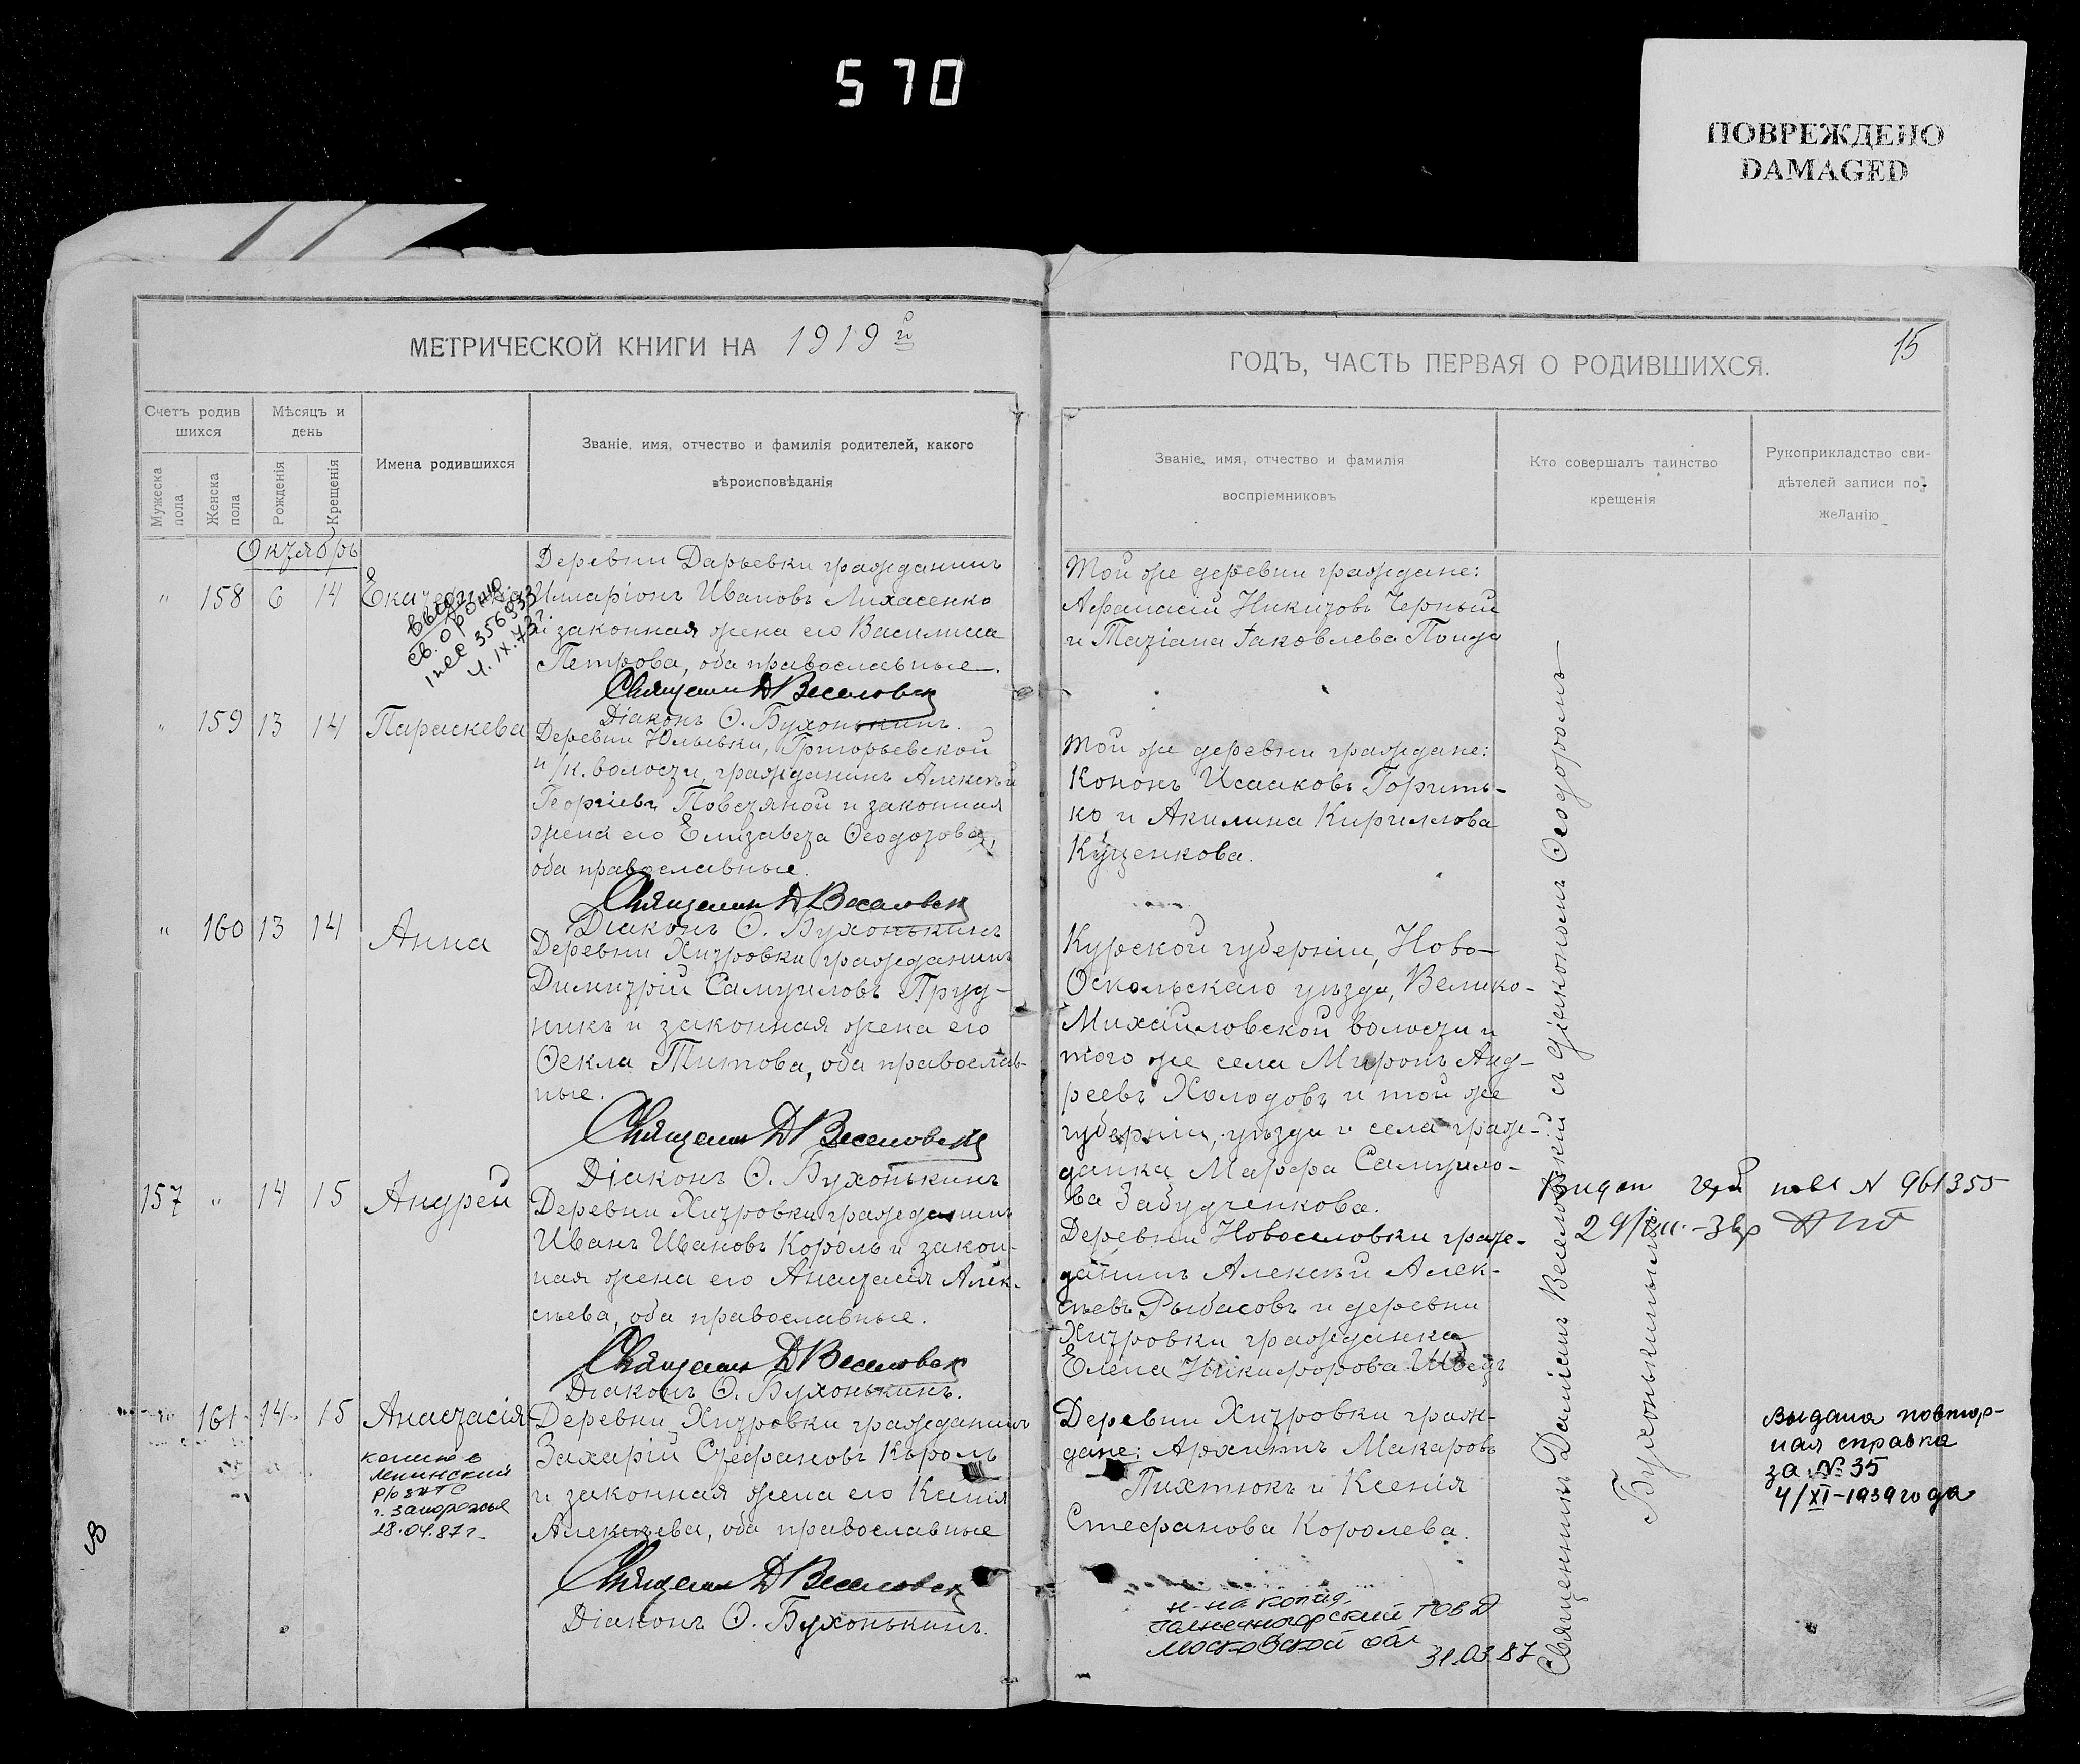 570
ПОВРЕЖДЕНО
DAMAGED
МЕТРИЧЕСКОЙ КНИГИ НА 1919 й
ГОДЪ, ЧАСТЬ ПЕРВАЯ О РОДИВШИХСЯ.
15
Счетъ родив
шихся
Мѣсяцъ и
день
Мужеска
пола
Женска
пола
Рожденія
Крещенія
Имена родившихся
Званіе, имя, отчество и фамилія родителей, какого
вѣроисповѣданія
Званіе, имя, отчество и фамилія
воспріемниковъ
Кто совершалъ таинство
крещенія
Рукоприкладство сви-
дѣтелей записи по-
желанію
Октябрь
" 158 6 14 Екатерина
Деревни Дарьевки гражданинъ
Илларіонъ Ивановъ Лихасенко
и законная жена его Василиса
Петрова, оба православные.
Священ. Д. Веселовск
Діаконъ Ѳ. Бухонькинъ.
Той же деревни граждане:
Афанасій Никитовъ Черный
и Татіана Іаковлева Понда
" 159 13 14 Параскева
Деревни Юльевки, Григорьевской
н/к. волости, гражданинъ Алексѣй
Георгіевъ Повстяной и законная
жена его Елизавета Ѳеодотова,
оба православные.
Священ. Д. Веселовск
Діаконъ Ѳ. Бухонькинъ
Той же деревни граждане:
Кононъ Исааковъ Горить-
ко и Акилина Кириллова
Куценкова.
" 160 13 14 Анна
Деревни Хитровки гражданинъ
Димитрій Самуиловъ Пруд-
никъ и законная жена его
Ѳекла Титова, оба православ-
ные.
Священ. Д. Веселовск
Діаконъ Ѳ. Бухонькинъ
Курской губерніи, Ново-
Оскольскаго уѣзда, Велико-
Михайловской волости и
того же села Миронъ Анд-
реевъ Холодовъ и той же
губерніи, уѣзда и села граж-
данка Марфа Самуило-
ва Забудченкова.
157 " 14 15 Андрей
Деревни Хитровки гражданинъ
Иванъ Ивановъ Король и закон-
ная жена его Анастасія Алек-
сѣева, оба православные.
Священ. Д. Веселовск
Діаконъ Ѳ. Бухонькинъ.
Деревни Новоселовки граж-
данинъ Алексѣй Алек-
сѣевъ Рыбасовъ и деревни
Хитровки гражданка
Елена Никифорова Швецъ
N 961355
161 14 15 Анастасія
копию в
Ленинский
р/о ЗАГС
г. Запорожья
28.04.87 г
Деревни Хитровки гражданинъ
Захарій Стефановъ Король
и законная жена его Ксенія
Алексѣева, оба православные
Священ. Д. Веселовск
Діаконъ Ѳ. Бухонькинъ.
Деревни Хитровки граж-
дане: Архипъ Макаровъ
Пихтюкъ и Ксенія
Стефанова Королева.
Московской обл
31.03.87
Священникъ Даміанъ Веселовскій съ діакономъ Ѳеодоромъ
Бухонькинымъ
Выдана повтор-
ная справка
за № 35
4/XI-1939 года